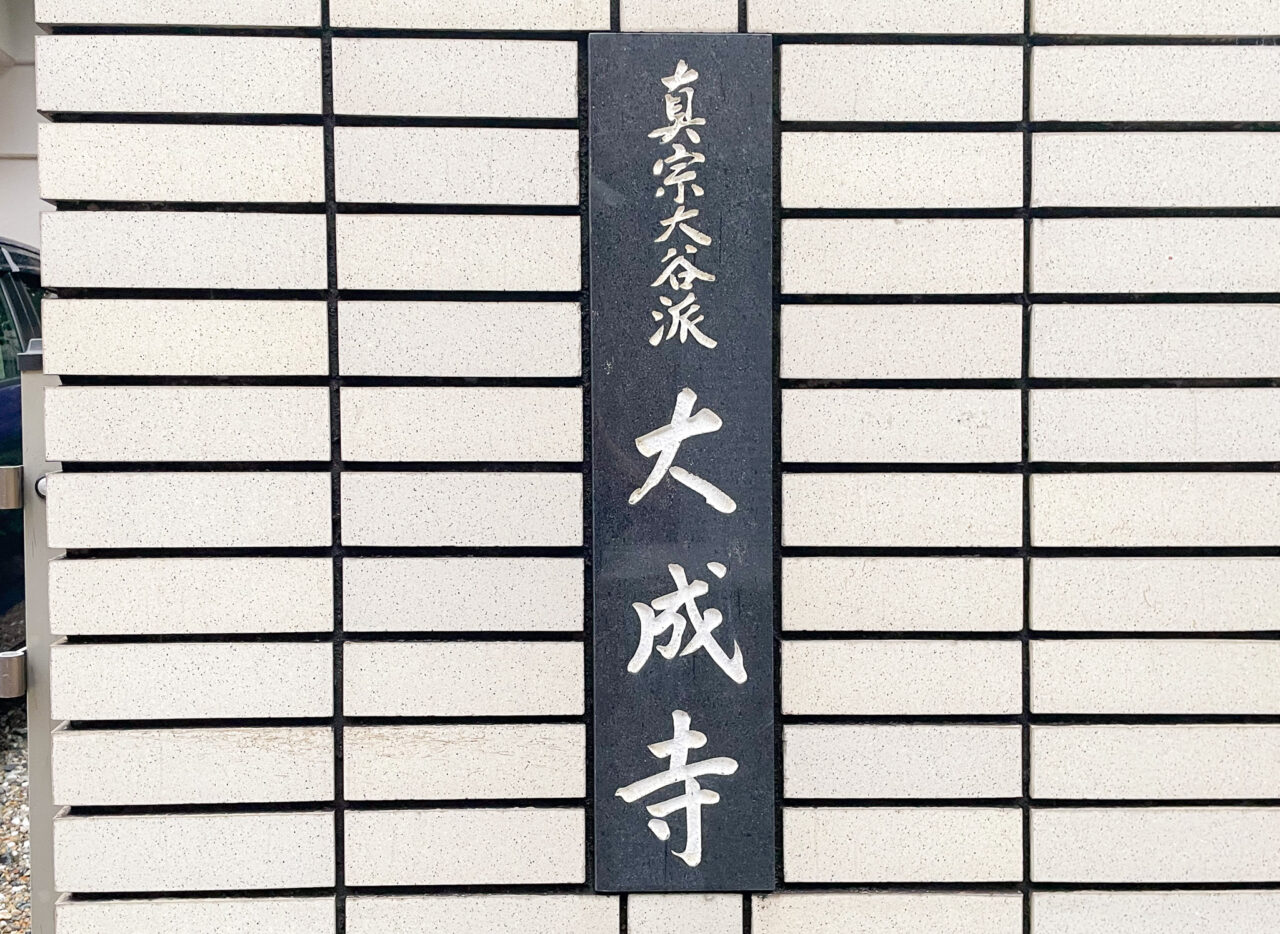 真宗大谷派 大成寺